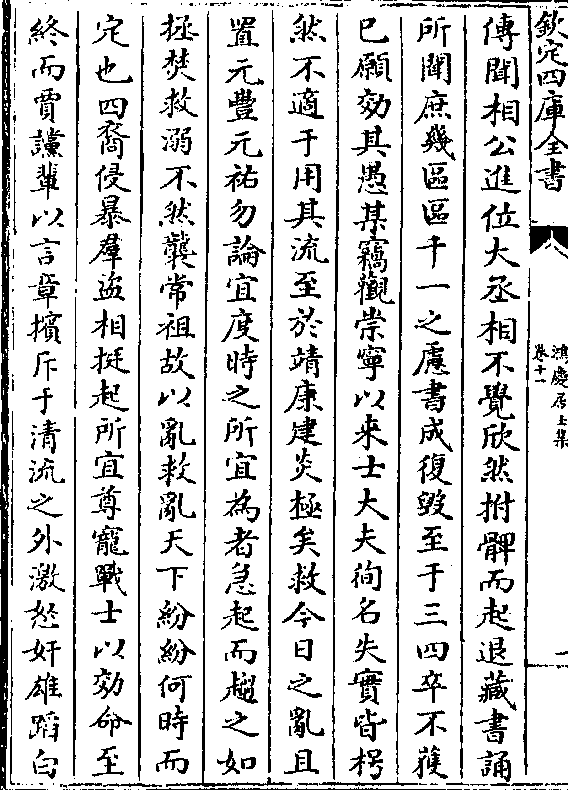 欽定四庫全書
鴻慶居士集
卷十一
一
傳聞相公進位大丞相不覺欣然拊髀而起退藏書誦
所聞庶幾區區千一之慮書成復毀至于三四卒不獲
已願効其愚某竊觀崇寧以来士大夫徇名失實皆枵
然不適于用其流至於靖康建炎極矣救今日之亂且
置元豐元祐勿論宜度時之所宜為者急起而趨之如
拯焚救溺不然襲常祖故以亂救亂天下紛紛何時而
定也四裔侵暴羣盗相挻起所宜尊寵戰士以効命至
終而賈讜輩以言章擯斥于清流之外激怒奸雄蹈白